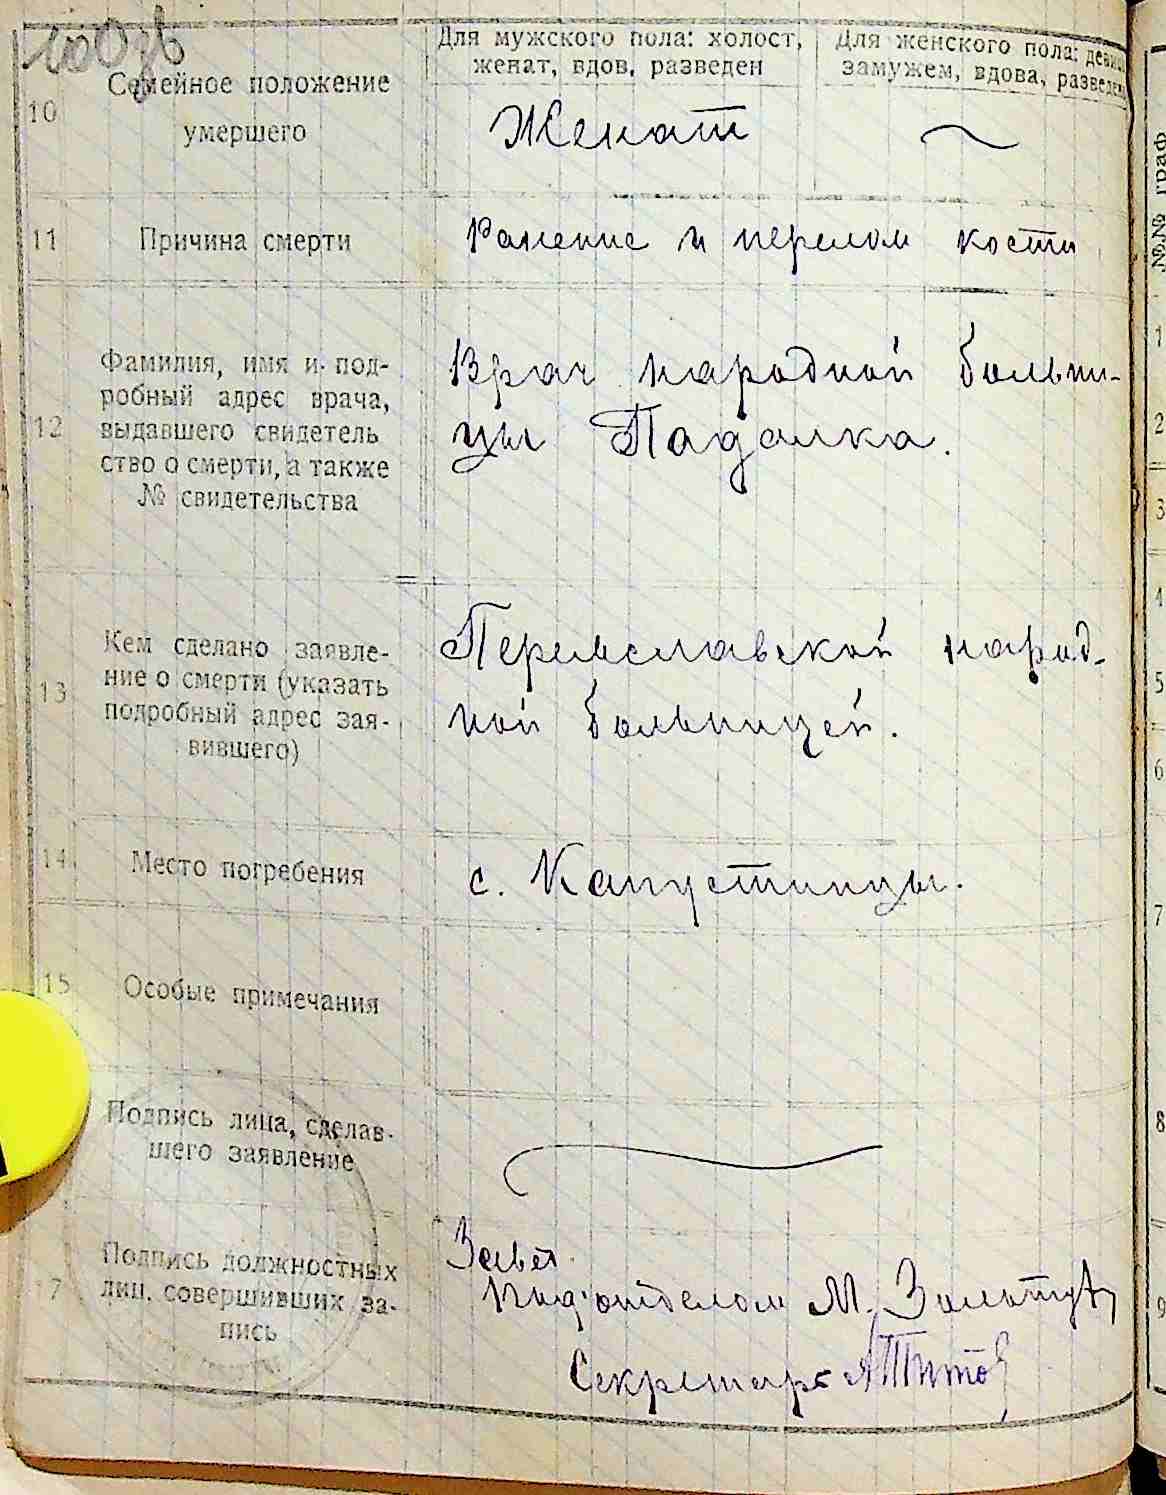 Для мужского пола: холост,
женат, вдов, разведен
Для женского пола: девица
замужем, вдова, разведен
10
Семейное положение
умершего
Женат
11
Причина смерти
Ранение и перелом кости
12
Фамилия, имя и под-
робный адрес врача,
выдавшего свидетель
ство о смерти, а также
№ свидетельства
Врач народной больни-
цы Падалка.
13
Кем сделано заявле-
ние о смерти (указать
подробный адрес зая-
вившего)
Переяславской народ-
ной больницей.
14
Место погребения
с. Капустинцы.
15
Особые примечания
Подпись лица, сделав-
шего заявление
7
Подпись должностных
лиц, совершивших за-
пись
Под'отделом М.
Секретарь Титов
№№ граф
1
2
3
4
5
6
7
8
9